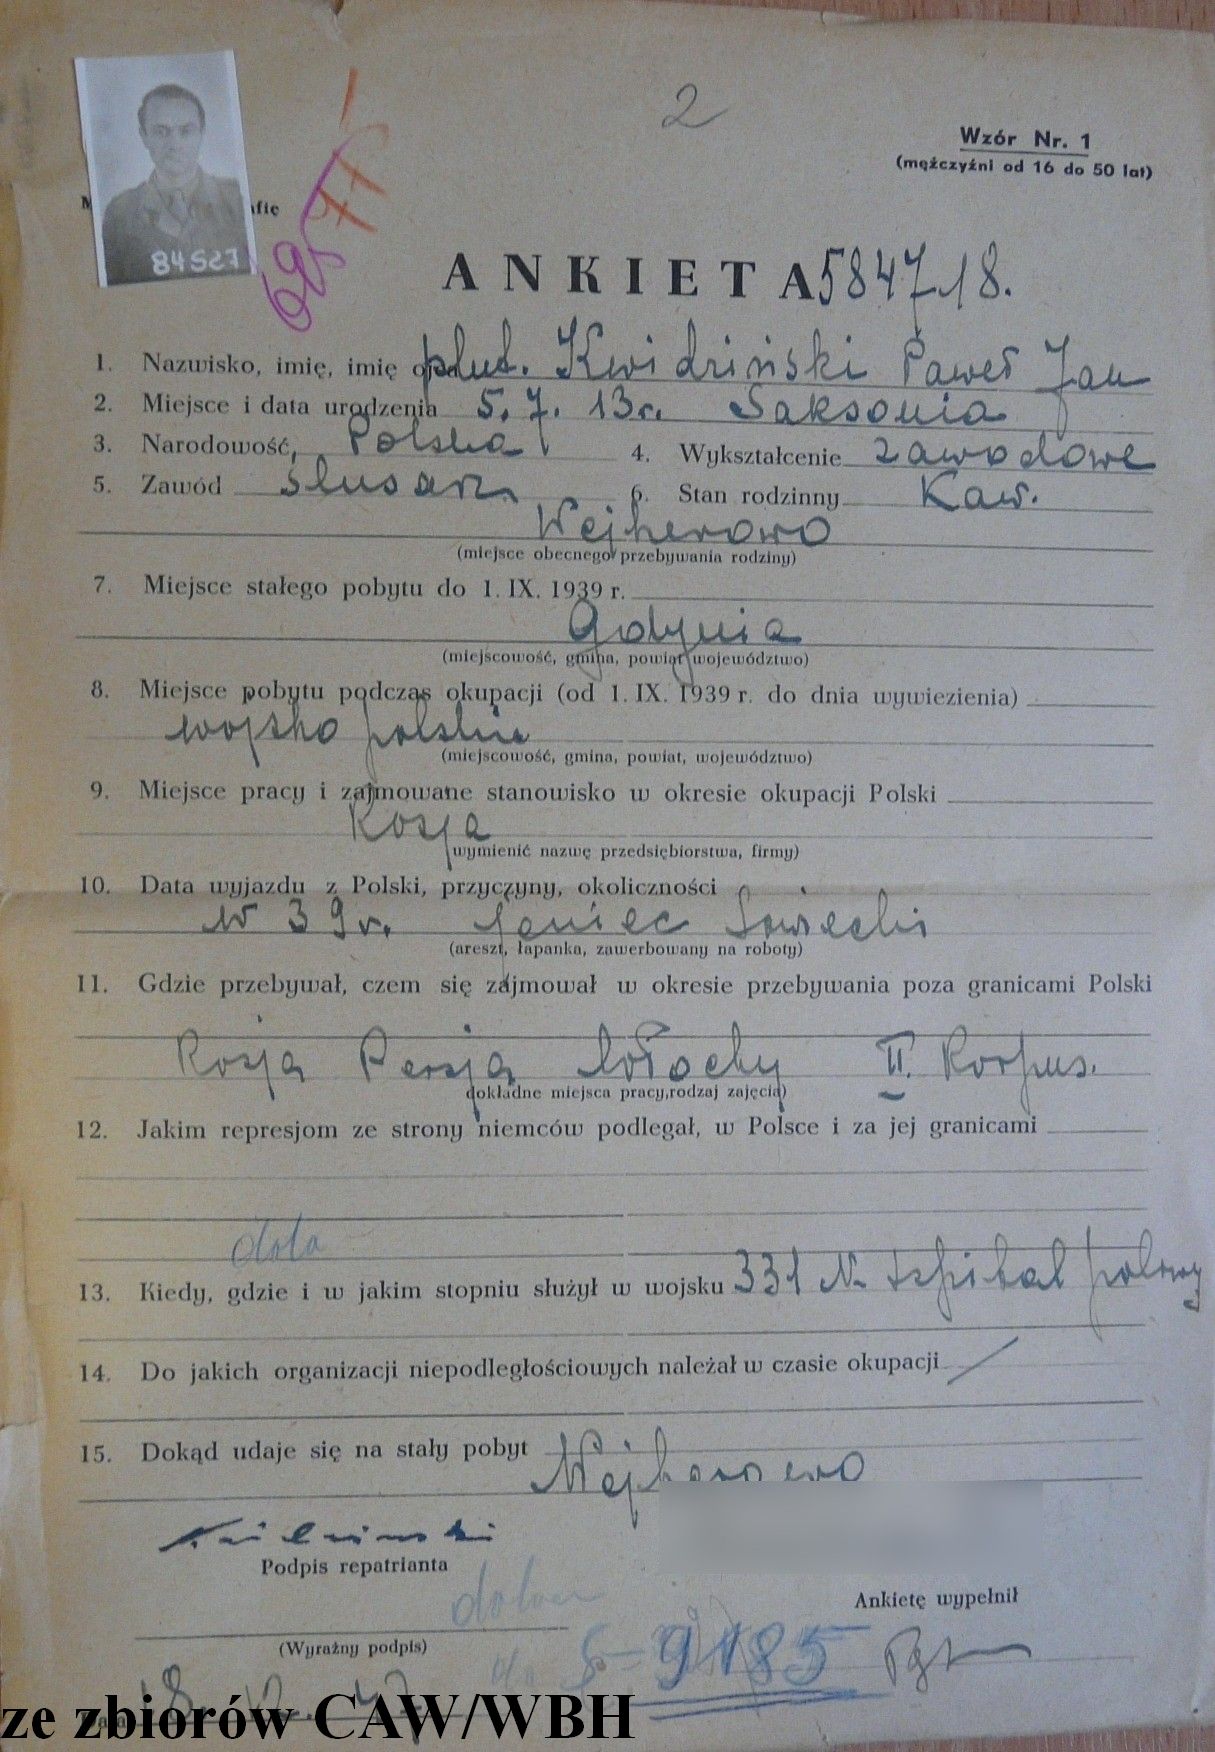 2
Wzór Nr. 1
(mężczyźni od 16 do 50 lat)
84527
ANKIETA 5847/18.
1. Nazwisko, imię, imię plut. Kwidziński Paweł Jan
2. Miejsce i data urodzenia 5.7.13r. Saksonia
3. Narodowość, Polska 4. Wykształcenie zawodowe
5. Zawód ślusarz 6. Stan rodzinny Kaw.
Wejherowo
(miejsce obecnego przebywania rodziny)
7. Miejsce stałego pobytu do 1. IX. 1939 r.
Gdynia
(miejscowość, gmina, powiat, województwo)
8. Miejsce pobytu podczas okupacji (od 1. IX. 1939 r. do dnia wywiezienia)
wojsko polskie
(miejscowość, gmina, powiat, województwo)
9. Miejsce pracy i zajmowane stanowisko w okresie okupacji Polski
Rosja
(wymienić nazwę przedsiębiorstwa, firmy)
10. Data wyjazdu z Polski, przyczyny, okoliczności
w 39 r. jeniec Sowiecki
(areszt, łapanka, zawerbowany na roboty)
11. Gdzie przebywał, czem się zajmował w okresie przebywania poza granicami Polski
Rosja Persja Włochy II. Korpus.
(dokładne miejsca pracy, rodzaj zajęcia)
12. Jakim represjom ze strony niemców podlegał, w Polsce i za jej granicami
13. Kiedy, gdzie i w jakim stopniu służył w wojsku 331 N. Szpital polowy
14. Do jakich organizacji niepodległościowych należał w czasie okupacji /
15. Dokąd udaje się na stały pobyt Wejherowo
Podpis repatrianta
Ankietę wypełnił
(Wyraźny podpis)
9185
ze zbiorów CAW/WBH